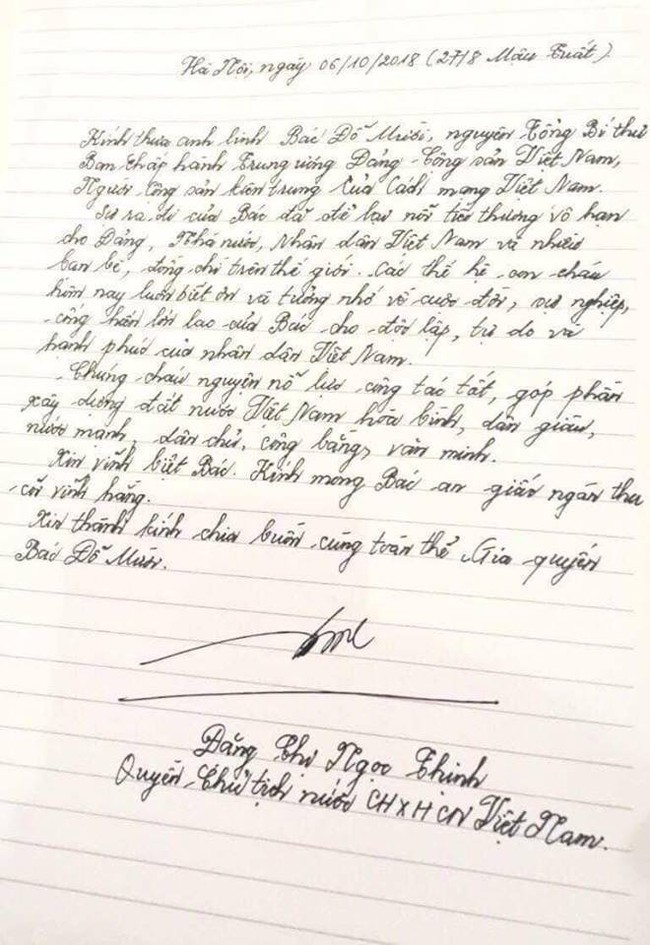 Hà Nội, ngày 06/10/2018 (27/8 Mậu Tuất).
Kính thưa anh linh Bác Đỗ Mười, nguyên Tổng Bí thư
Ban chấp hành Trung ương Đảng Cộng sản Việt Nam,
Người Cộng sản kiên trung của Cách mạng Việt Nam.
Sự ra đi của Bác đã để lại nỗi tiếc thương vô hạn
cho Đảng, Nhà nước, Nhân dân Việt Nam và nhiều
bạn bè, đồng chí trên thế giới. Các thế hệ con cháu
hôm nay luôn biết ơn và tưởng nhớ về cuộc đời, sự nghiệp,
công hiến lớn lao của Bác cho độc lập, tự do và
hạnh phúc của nhân dân Việt Nam.
Chúng cháu nguyện nỗ lực công tác tốt, góp phần
xây dựng đất nước Việt Nam hòa bình, dân giàu,
nước mạnh, dân chủ, công bằng, văn minh.
Xin vĩnh biệt Bác. Kính mong Bác an giấc ngàn thu
cõi vĩnh hằng.
Xin thành kính chia buồn cùng toàn thể Gia quyến
Bác Đỗ Mười.
Đặng Thị Ngọc Thịnh
Quyền Chủ tịch nước CHXHCN Việt Nam.